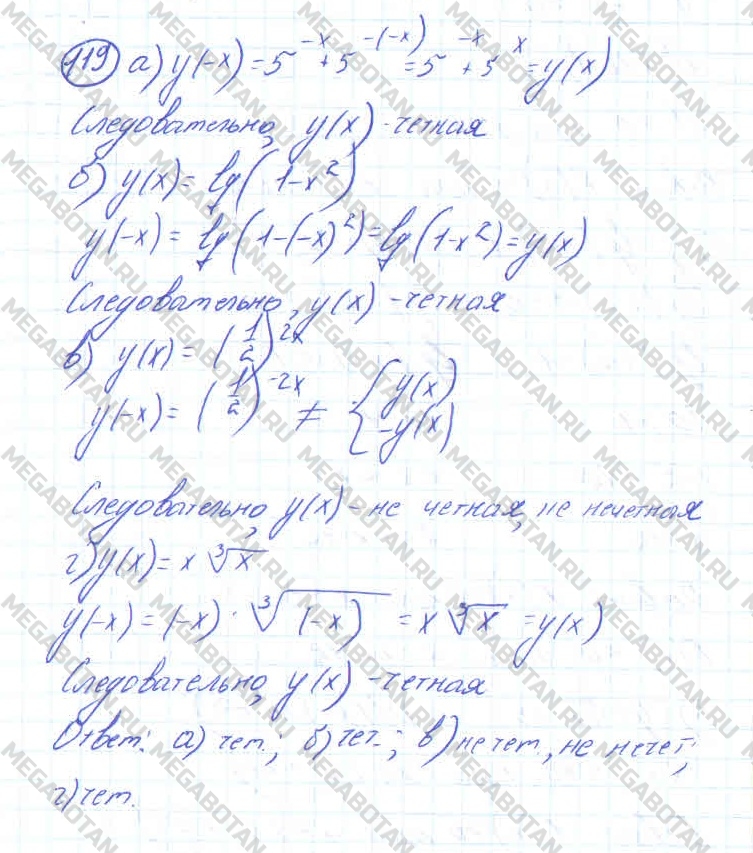 119 а) y(-x) = 5^{-x} + 5^{-(-x)} = 5^{-x} + 5^{x} = y(x)
Следовательно, y(x) - четная
б) y(x) = lg(1-x²)
y(-x) = lg(1-(-x)²) = lg(1-x²) = y(x)
Следовательно, y(x) - четная
в) y(x) = (1/2)^{2x}
y(-x) = (1/2)^{-2x} ≠ { y(x) -y(x)
Следовательно, y(x) - не четная, не нечетная
г) y(x) = x ∛x
y(-x) = (-x) · ∛(-x) = x ∛x = y(x)
Следовательно, y(x) - четная
Ответ: а) чет.; б) чет.; в) не чет., не нечет;
г) чет.
MEGABOTAN.RU